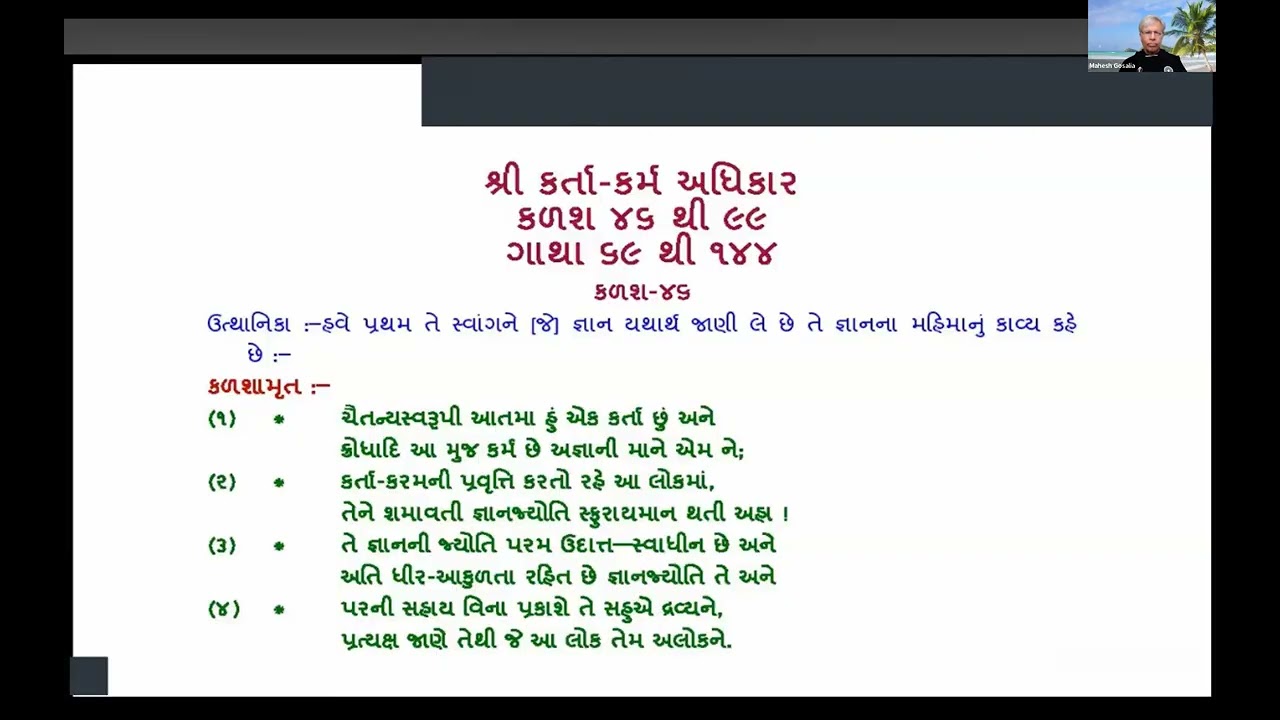 Mahesh Gosalia
શ્રી કર્તા-કર્મ અધિકાર
કળશ ૪૬ થી ૯૯
ગાથા ૬૯ થી ૧૪૪
કળશ-૪૬
ઉત્થાનિકા :—હવે પ્રથમ તે સ્વાંગને [જે] જ્ઞાન યથાર્થ જાણી લે છે તે જ્ઞાનના મહિમાનું કાવ્ય કહે
છે :—
કળશામૃત :—
(૧) * ચૈતન્યસ્વરૂપી આતમા હું એક કર્તા છું અને
ક્રોધાદિ આ મુજ કર્મ છે અજ્ઞાની માને એમ ને;
(૨) * કર્તા-કરમની પ્રવૃત્તિ કરતો રહે આ લોકમાં,
તેને શમાવતી જ્ઞાનજ્યોતિ સ્ફુરાયમાન થતી અહા !
(૩) * તે જ્ઞાનની જ્યોતિ પરમ ઉદાત્ત—સ્વાધીન છે અને
અતિ ધીર-આકુળતા રહિત છે જ્ઞાનજ્યોતિ તે અને
(૪) * પરની સહાય વિના પ્રકાશે તે સહુએ દ્રવ્યને,
પ્રત્યક્ષ જાણે તેથી જે આ લોક તેમ અલોકને.